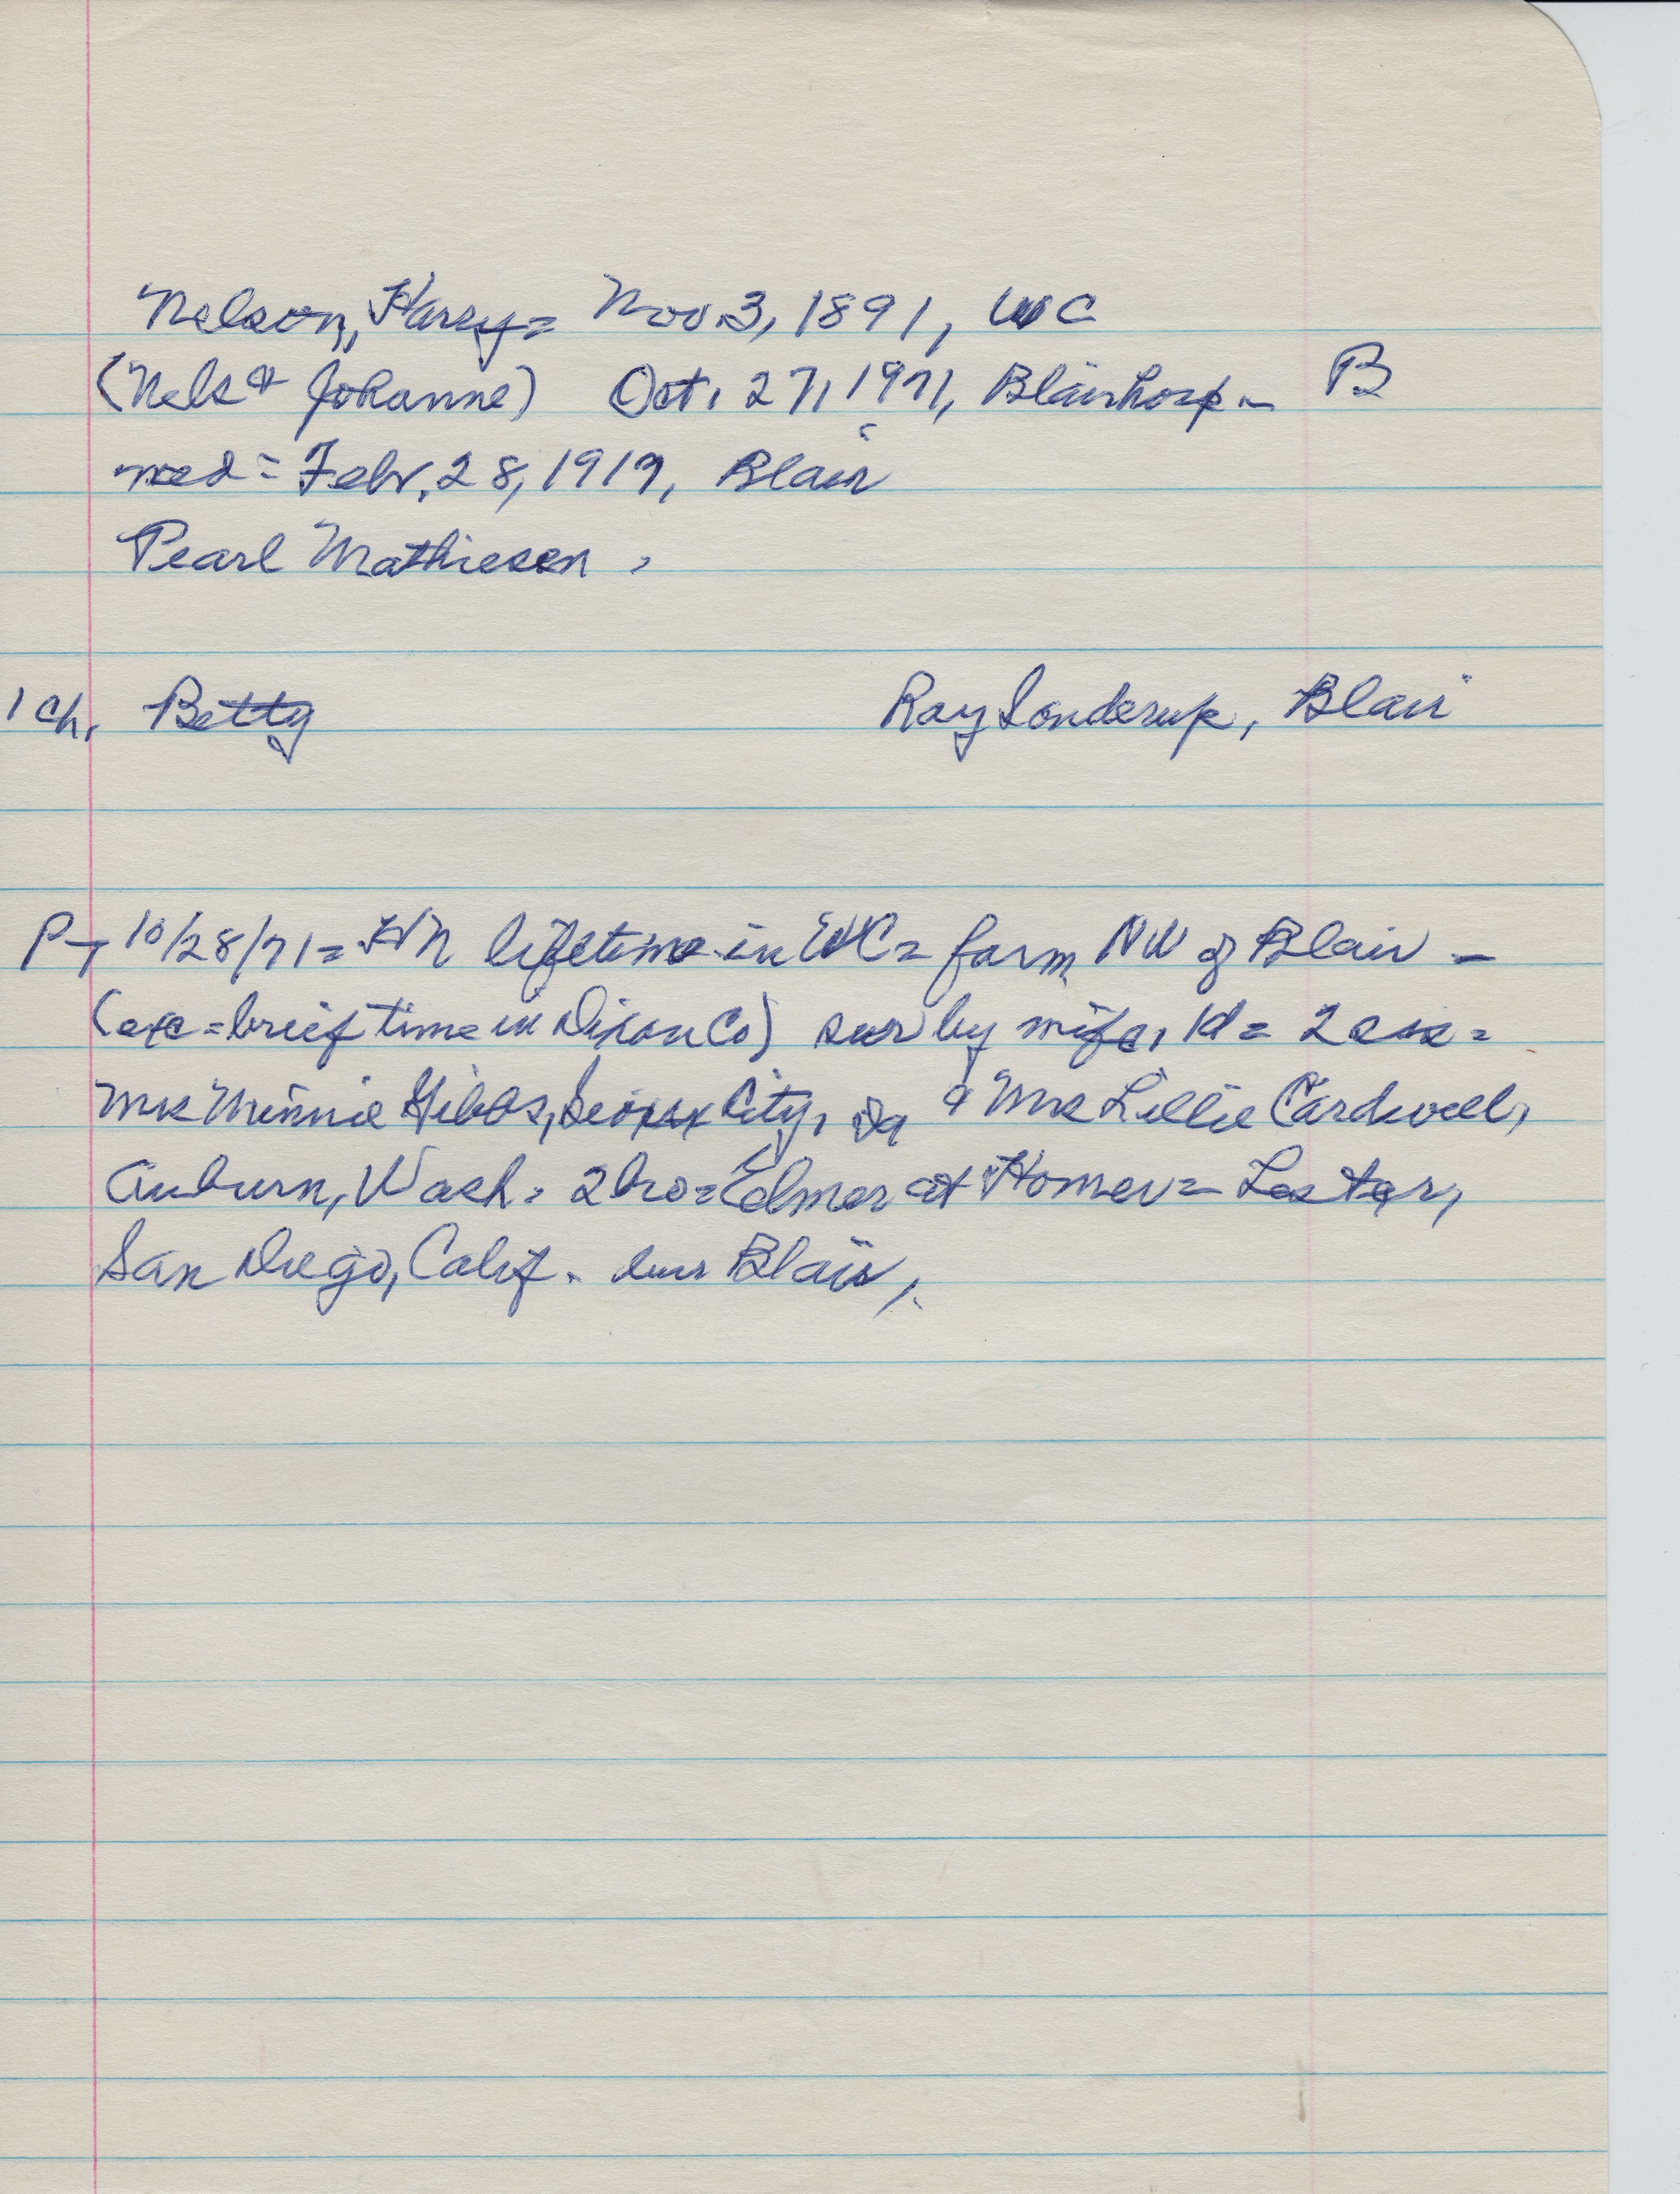 Nelson, Harry = Nov 3, 1891, WC
(Nels & Johanne) Oct. 27, 1971, Blair hosp - B
med = Febr. 28, 1919, Blair
Pearl Mathiesen,
1 ch. Betty Ray Sonderup, Blair
P-T 10/28/71 = HN lifetime in WC = farm NW of Blair -
(exc = brief time in Dixon Co) sur by wife, 1d = 2 sis =
Mrs Minnie Gibbs, Sioux City, Ia & Mrs Lillie Cardwell,
Auburn, Wash. 2 bro = Elmer at Homer = Lester,
San Diego, Calif. bur Blair,